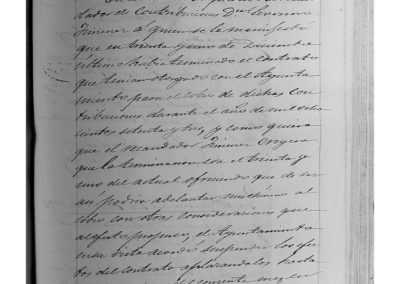 dador de Contribuciones Dn Severino
Jimenez á quien se le manifestó
que en treinta y uno de Diciembre
último habia terminado el contrato
que tenian otorgado con el Ayunta
miento para el cobro de dichas con
tribuciones durante el año de mil ocho
cientos setenta y tres, y como quiera
que el recaudador Jimenez creyera
que la terminacion era el treinta y
uno del actual ofreciendo que de ser
asi podria adelantar muchisimo al
con otras consideraciones que
al efecto propuso, el Ayuntamiento
en su vista acordó suspender los efec
tos del contrato aplazandolos hasta